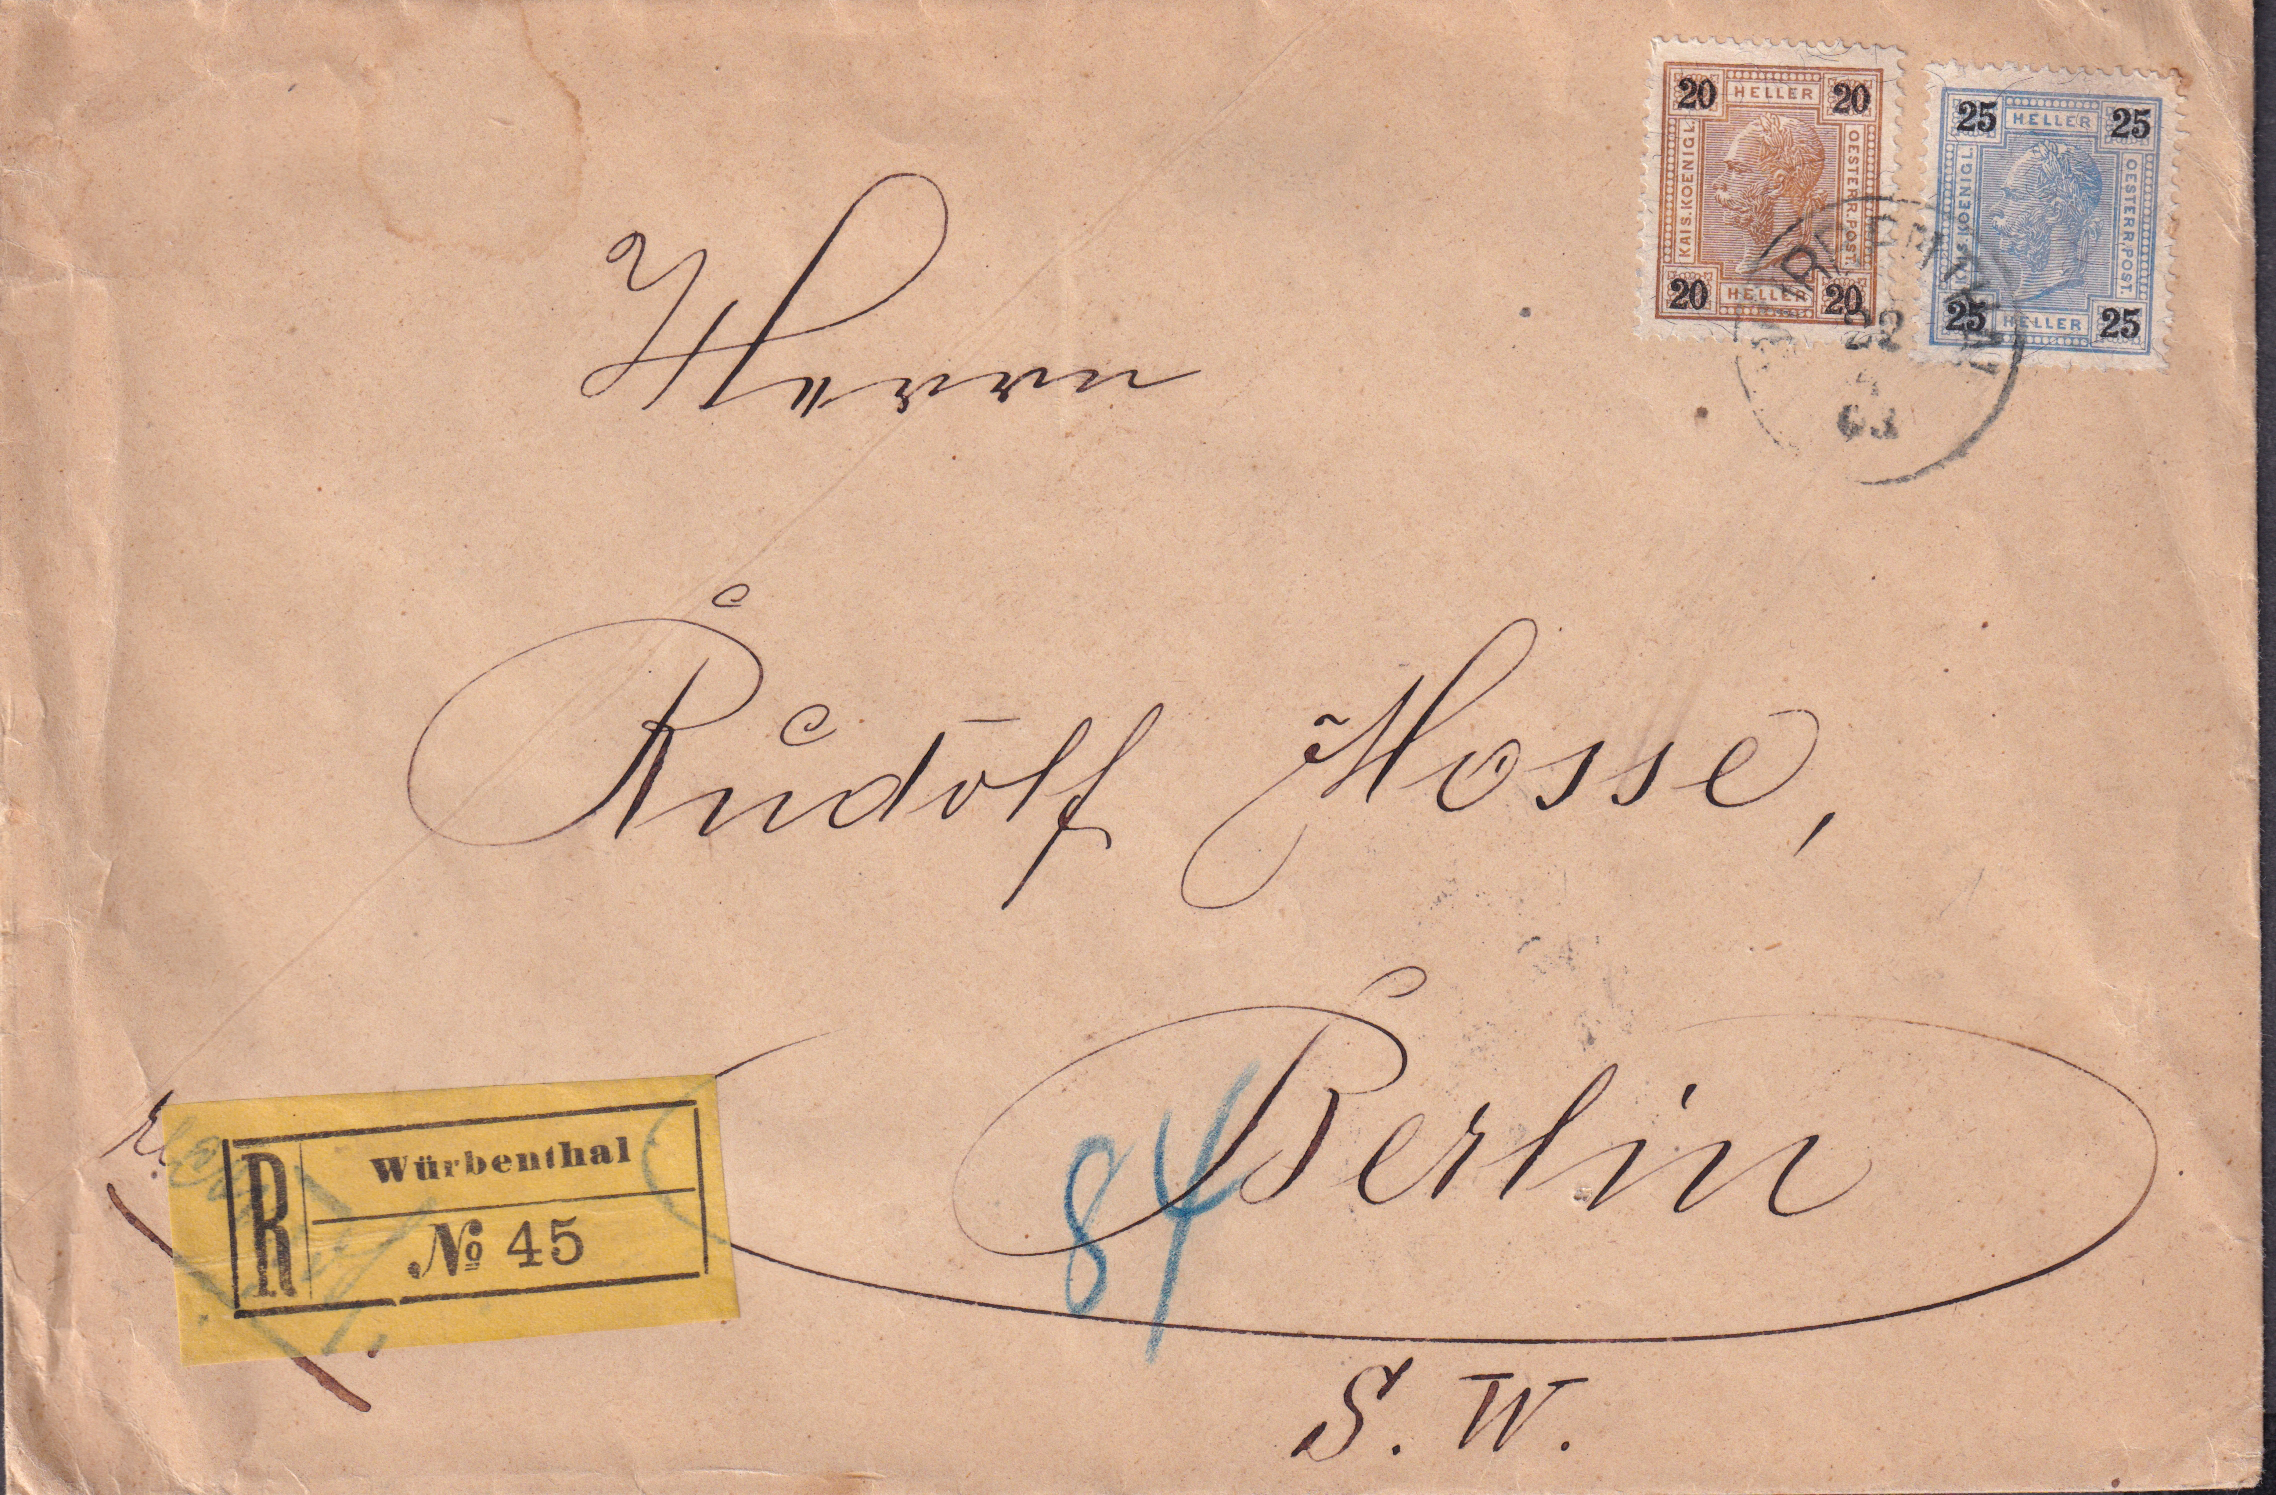 20 HELLER 20
KAIS. KOENIGL.
OESTERR. POST.
20 HELLER 20
25 HELLER 25
KAIS. KOENIGL.
OESTERR. POST.
25 HELLER 25
22
4
03
Herrn
Rudolf Mosse,
Berlin
84
S. W.
R
Würbenthal
№ 45